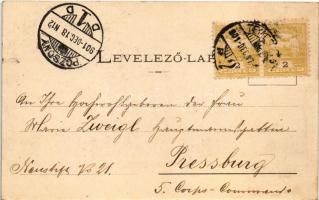 POZSONY
903 DEC 18 N12
1 D
LEVELEZŐ-LAP
2
An Ihre Hochwohlgeboren der Frau
Marie Zweigl Hauptmannsgattin
Pressburg
Neustift No 21.
5. Corps-Commando